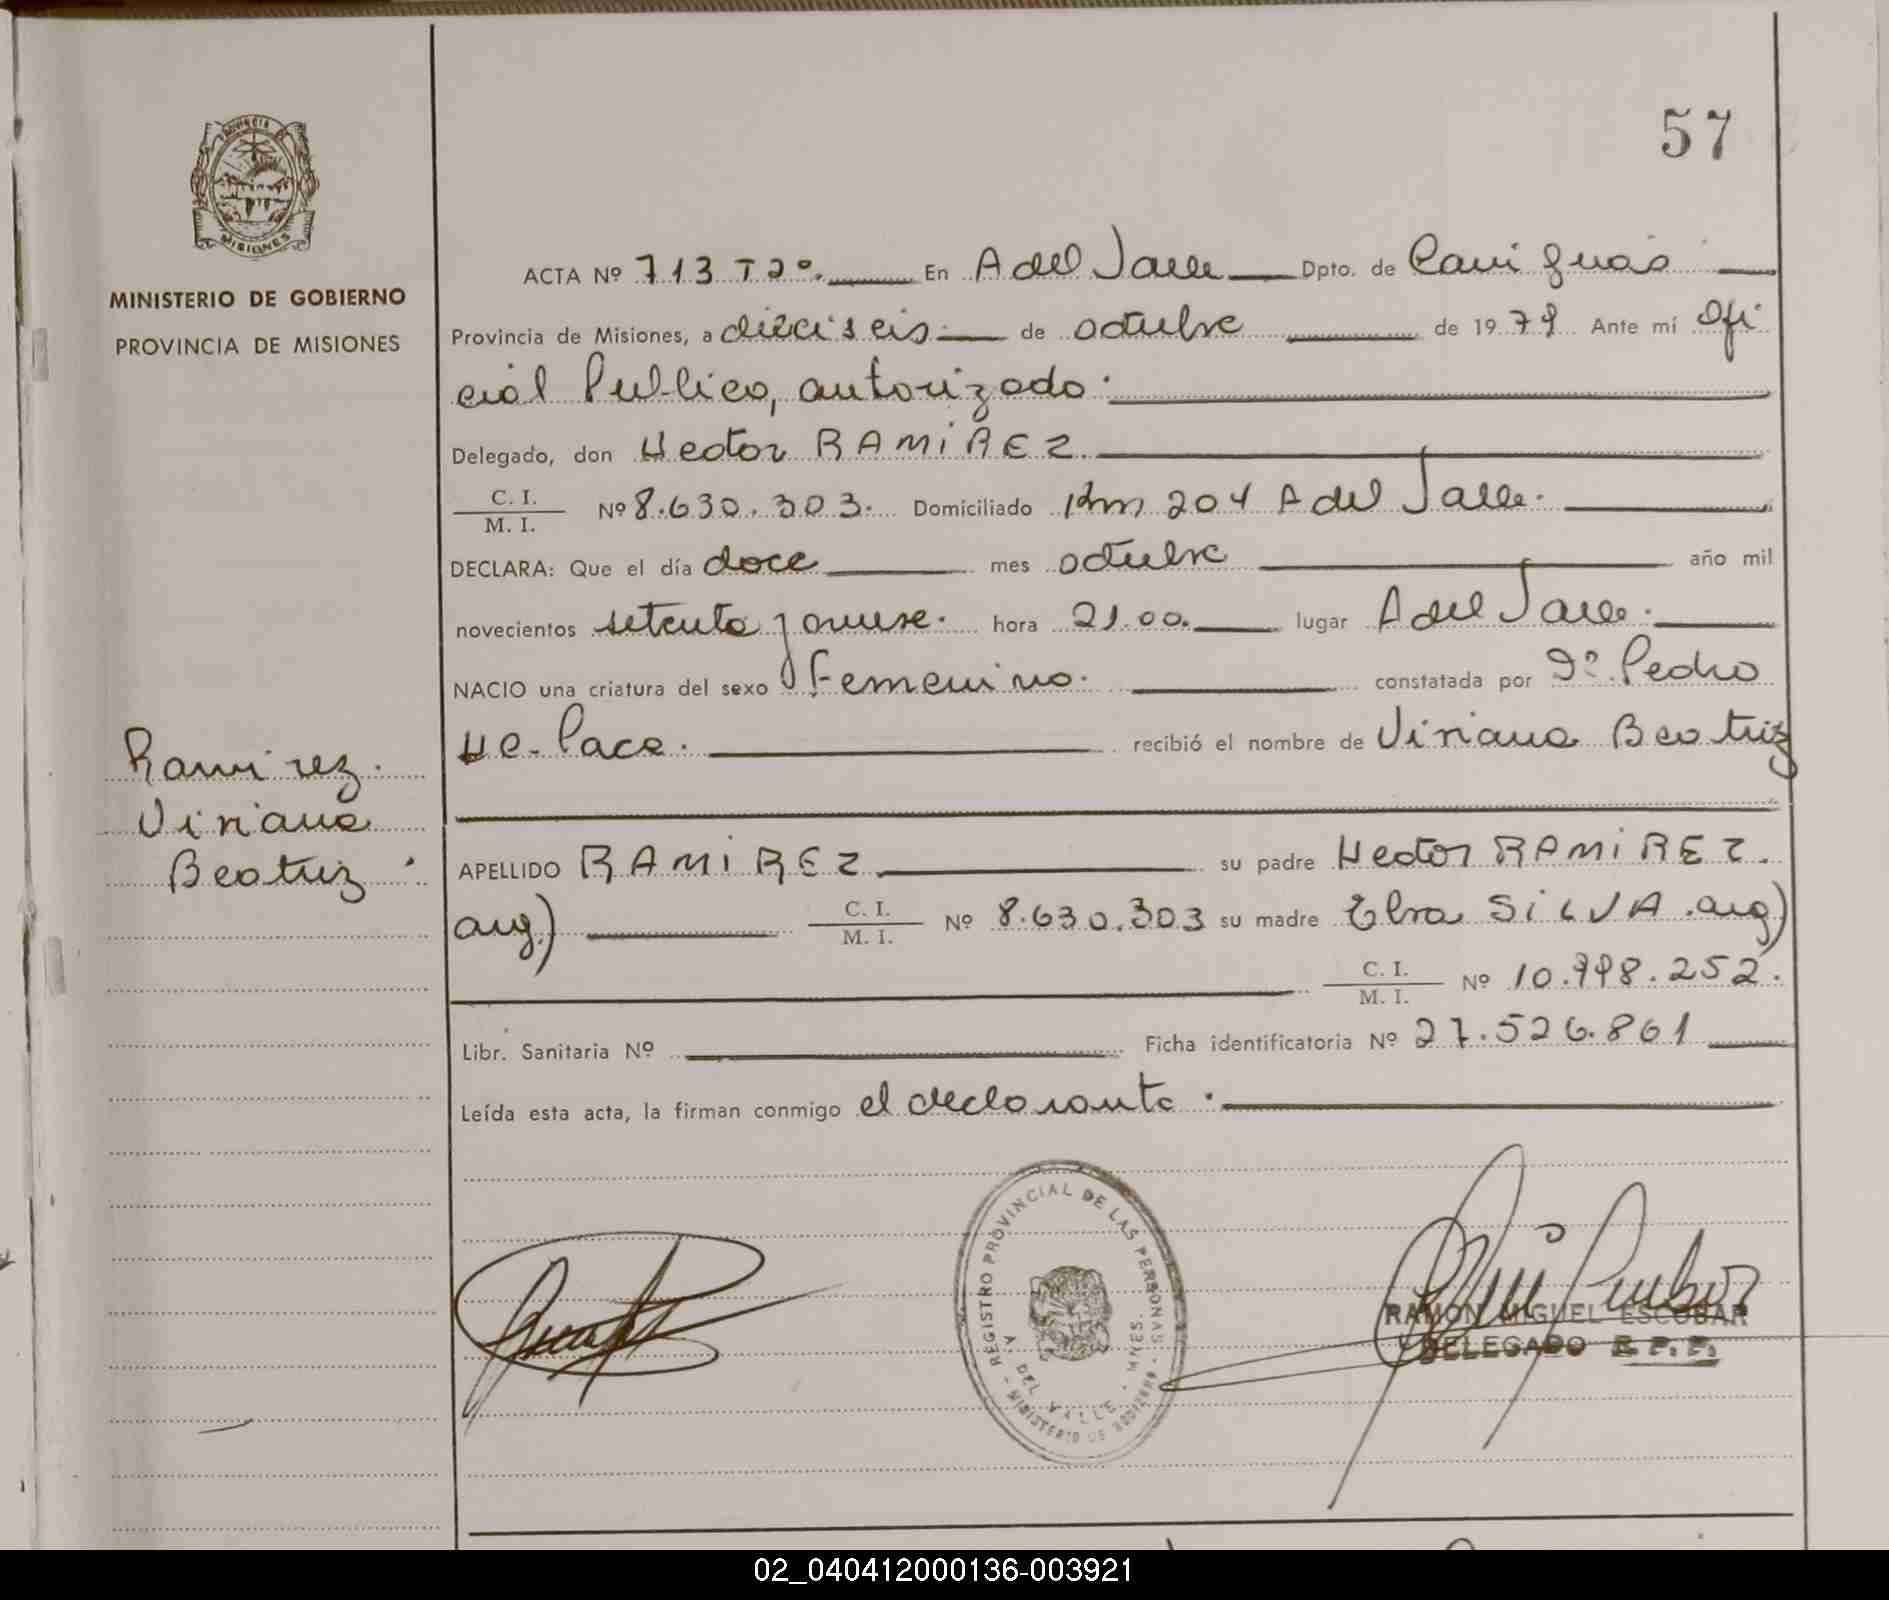 57
PROVINCIA DE
MISIONES
MINISTERIO DE GOBIERNO
PROVINCIA DE MISIONES
ACTA Nº 713 T2º. En A del Valle Dpto. de Cainguás
Provincia de Misiones, a dieciseis de octubre de 1979 Ante mí Ofi
cial Publico, autorizado.
Delegado, don Hector RAMiREZ
C. I.
M. I. Nº 8.630.303. Domiciliado Km 204 A del Valle.
DECLARA: Que el día doce mes octubre año mil
novecientos setenta y nueve. hora 21.00. lugar A del Valle.
NACIO una criatura del sexo femenino. constatada por Dº. Pedro
He. Pace. recibió el nombre de Viviana Beatriz
Ramirez.
Viviana
Beatriz.
APELLIDO RAMiREZ su padre Hector RAMiREZ.
arg.) C. I.
M. I. Nº 8.630.303 su madre Elva SiLVA. arg)
C. I.
M. I. Nº 10.998.252.
Libr. Sanitaria Nº Ficha identificatoria Nº 27.526.861
Leída esta acta, la firman conmigo el declarante.
REGISTRO PROVINCIAL DE LAS PERSONAS
A. DEL VALLE - MNES.
MINISTERIO DE GOBIERNO
RAMON MIGUEL ESCOBAR
DELEGADO R. P. P.
02_040412000136-003921